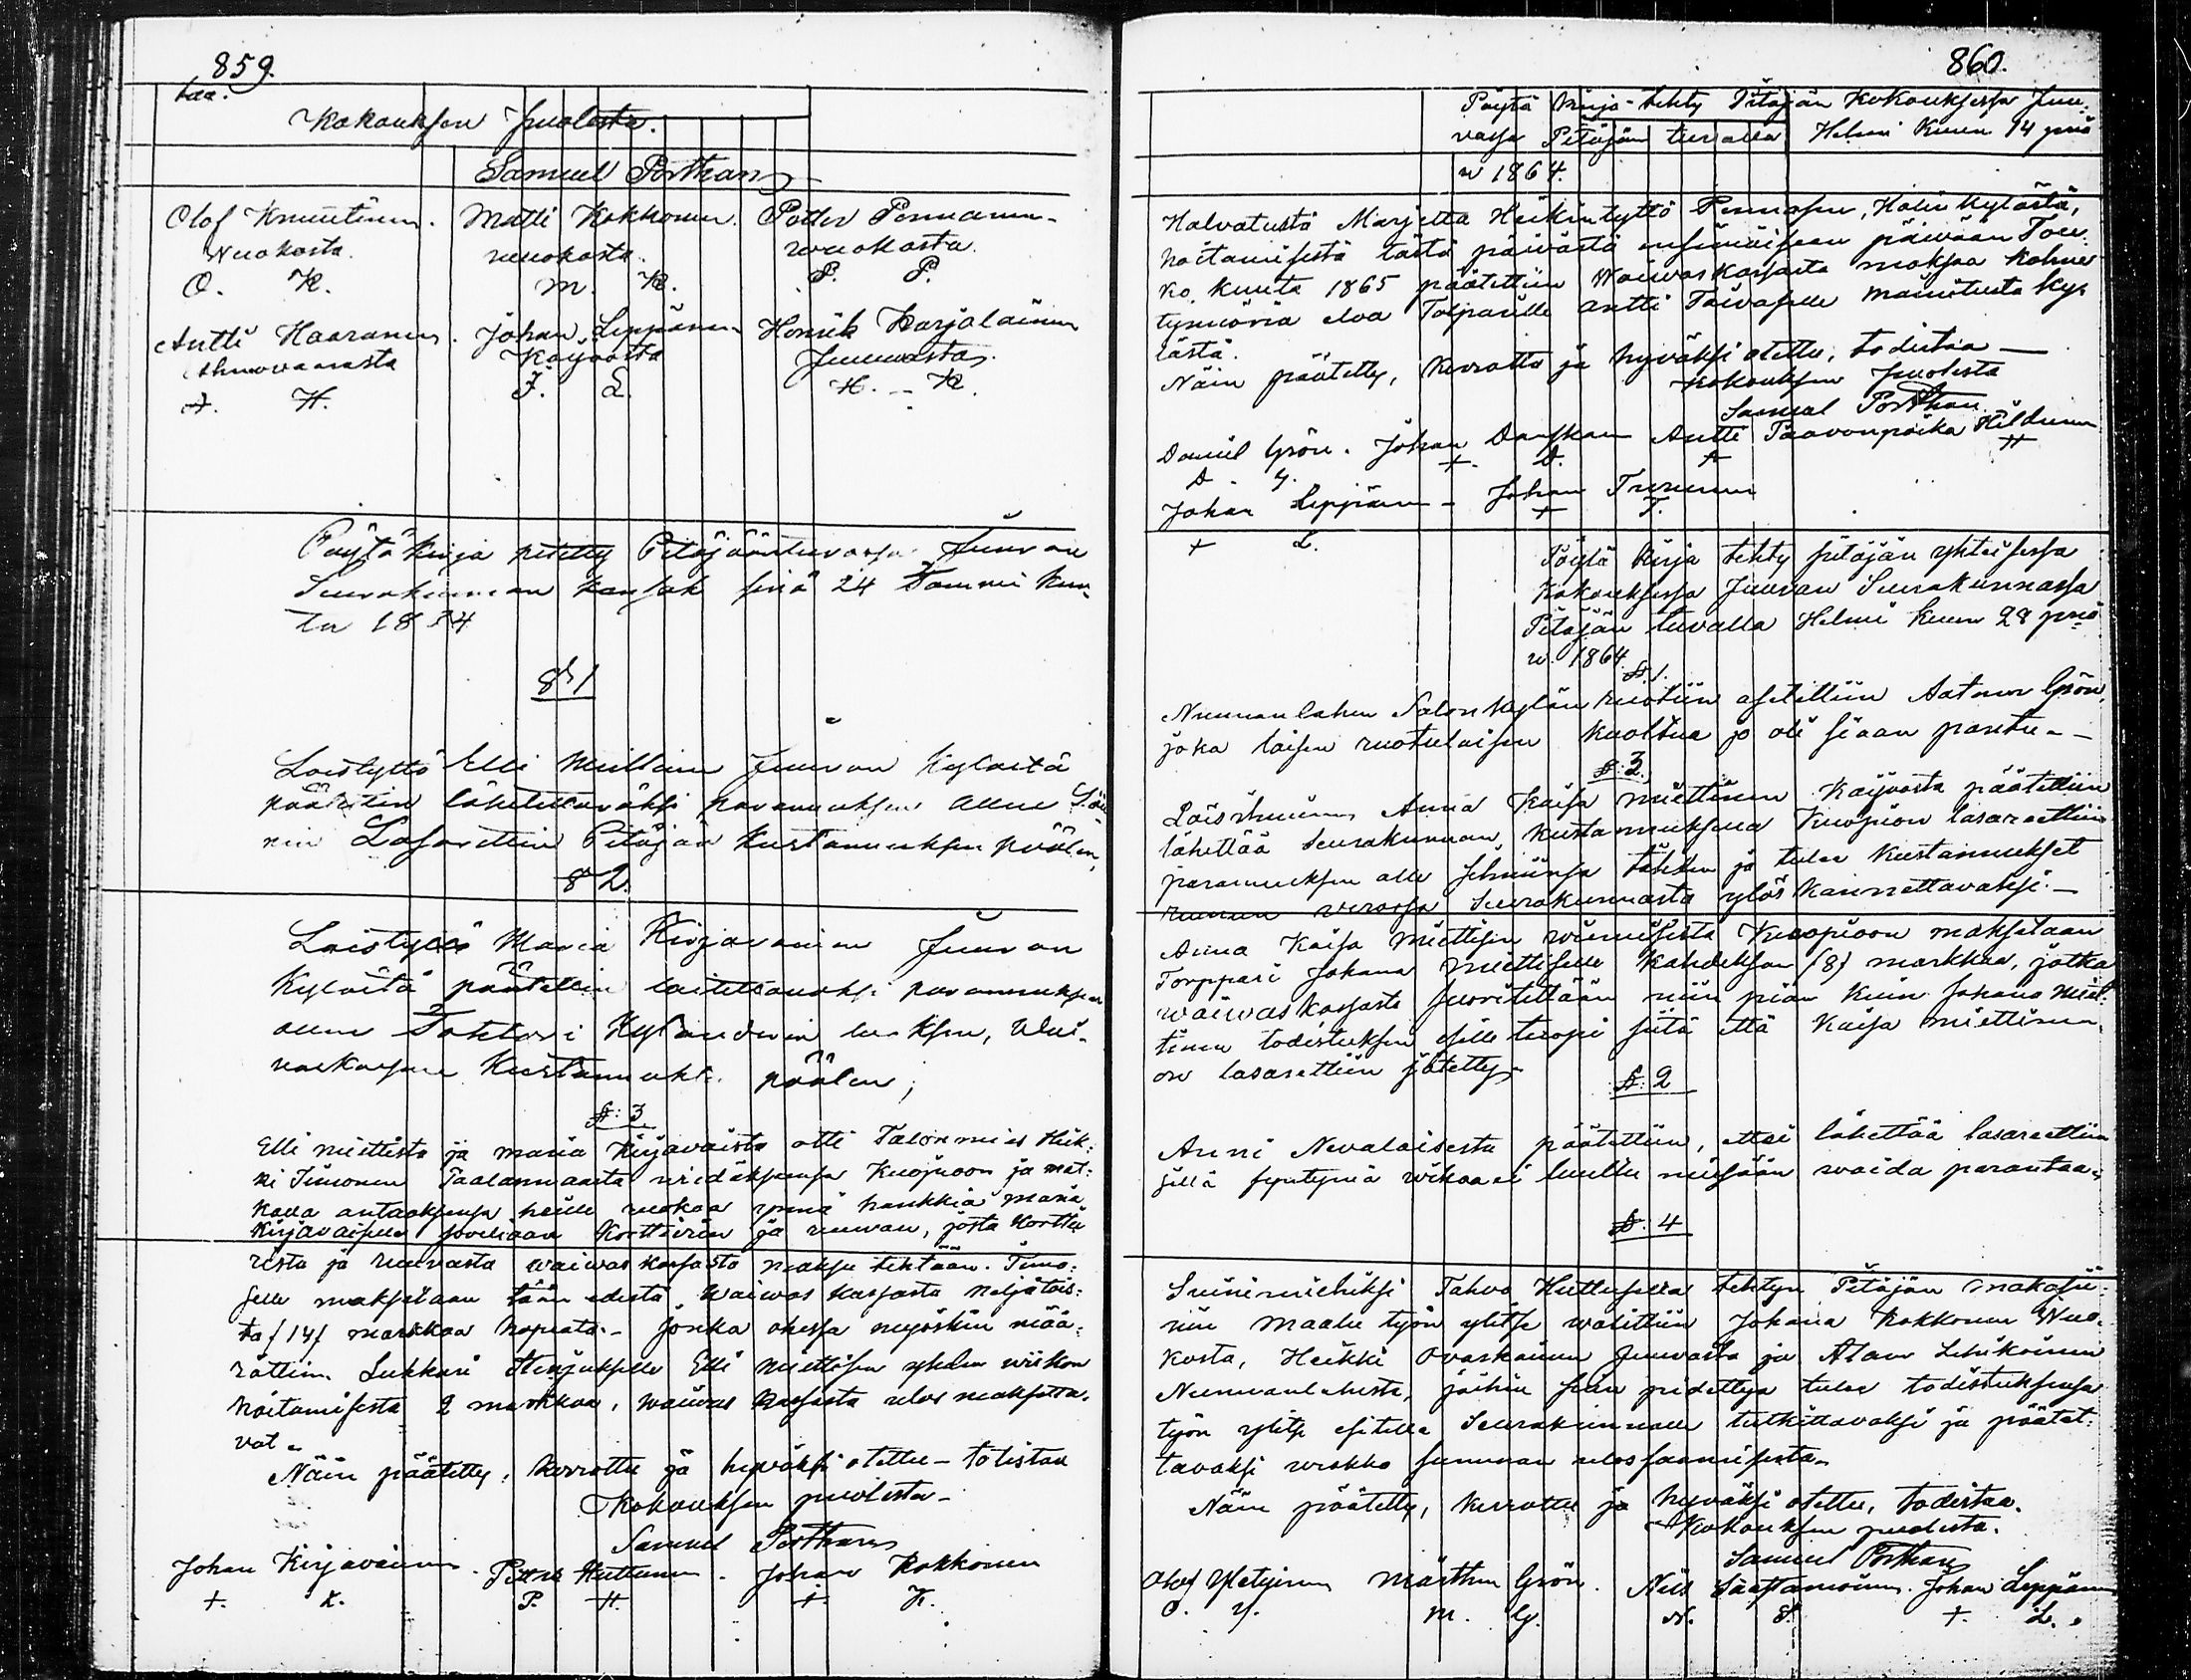 859.
taa.
Kokouksen Puolesta.
Samuel Porthan
Olof Knuutinen. Matti Kokkonen. Petter Pennanen.
Nuokosta. nuuokosta. wuokosta.
O. K. M. K. P. P.
Antti Haaranen. Johan Leppänen Henrik Karjalainen
Ahmovaarasta Kajvosta Juuwasta.
A. H. J. L. H. K.
Pöytä Kirja pidetty Pitäjääntuvassa Juuvan
Seurakunnan kansak sinä 24 Tammi kuu
ta 1864
§ 1
Loistyttö Elli Miettinen Juuvan Kylästä
päätettin lähetettäväksi parannuksen alle
nin Lasarettiin Pitäjän Kustannuksen päälen,
§ 2.
Loistyttö Maria Kirjavainen Juuvan
Kylästä päätettin laitettavaksi parannuksen
allen Tohtori Kylanderin luoksen, Wai-
vaskassan Kustannukse päälen,
§: 3
Elli Miettistä ja Maria Kirjavaista otti Talonmies Heik:
ki Timonen Paalanmaasta viedäksensä Kuopioon ja mat:
kalla antaaksensa heille ruokaa ynnä hankkia Maria
Kirjavaiselle soveliaan Korttierin ja ruuvan, josta Kortte
rista ja ruuvasta waiwaskassasta maksu tehtään. Timo:
selle maksetaan tään edestä Waiwas kassasta neljätois:
ta /14/ markkaa hopeata.- Jonka ohessa myöskin mää:
rättiin Lukkari Stenjukselle Elli Miettisen yhden wiikon
hoitamisesta 2 markkaa, waiwas kassasta ulos maksetta.
vat.
Näin päätetty, kerrottu ja hyväksi otettu - totistaa
Kokouksen puolesta -
Samuel Porthan
Johan Kirjavainen. Petter Huttunen. Johan Kokkonen
+. K. P. H. + K.
860.
Pöytä Kirja tehty Pitäjän Kokouksessa Juu-
vassa Pitäjän tuvalla Helmi Kuun 14 pnä
w 1864.
Halvatusta Marjetta Heikintyttö Pennasen, Halin Kylästä,
hoitamisesta tästä päivästä ensimäiseen päivään Tou:
ko kuuta 1865 päätettiin Waiwaskassasta maksaa kolme
tynnöriä eloa Torparille Antti Toivaselle mainitusta Ky:
lästä.
Näin päätetty, kerrottu ja hyväksi otettu, todistaa —
Kokouksen Puolesta
Samuel Porthan
Daniel Grön. Johan Danskan Antti Paavonpoika Hildunen
D. G. +. D. A H
Johan Leppänen - Johan Turunen
+ L. + T.
Pöytä Kirja tehty pitäjän yhteisessa
Kokouksessa Juuvan Seurakunnassa
Pitäjän tuvalla Helmi kuun 28 pnä
w. 1864.
§ 1.
Nunnanlahen Salon Kylän ruotiin asetettiin Aatamı Grön,
joka toisen ruotulaisen kuoltua jo oli siaan pantu.-
§: 3.
Loisihminen Anna Kaisa Miettinen Kajvosta päätettiin
lähettää Seurakunnan kustannuksella Kuopion lasarettiin
parannuksen alle tähten ja tulee Kustannukset
ruunun verossa Seurakunnasta ylös Kannettavaksi.—
Anna Kaisa Miettisen wiemisestä Kuopioon maksetaan
Torppari Johana Miettiselle kahdeksan /8/ markkaa, jotka
waiwaskassasta suoritettään niin pian kuin Johana Miet:
tinen todistuksen esille tuopi siitä että Kaisa Miettinen
on lasarettiin jätetty.
§: 2
Anni Nevalaisesta päätettiin, ettei lähettää lasarettiin
sillä syntynyä wikaa ei luultu missään woida parantaa.
§. 4
Sihnimiehiksi Tahvo Huttusella tehtyn Pitäjän makasii:
nin maalu työn ylitse walittiin Johana Kokkonen Nuo:
kosta, Heikki Ovaskainen Juuvasta ja Atam Lehikoinen
Nunnanlahesta, joihin pidettyä tulee todistuksensa
työn ylitse esitellä Seurakunnalle tutkittavaksi ja päätet:
tavaksi summan ulossaamisesta.
Näin päätetty, kerrottu ja hyväksi otettu, todistaa.
Kokouksen puolesta.
Samuel Porthan
Olof Yletyinen Martten Grön. Nils Saastamoinen. Johan Leppänen
O. Y. M. G. N. S. +. L.